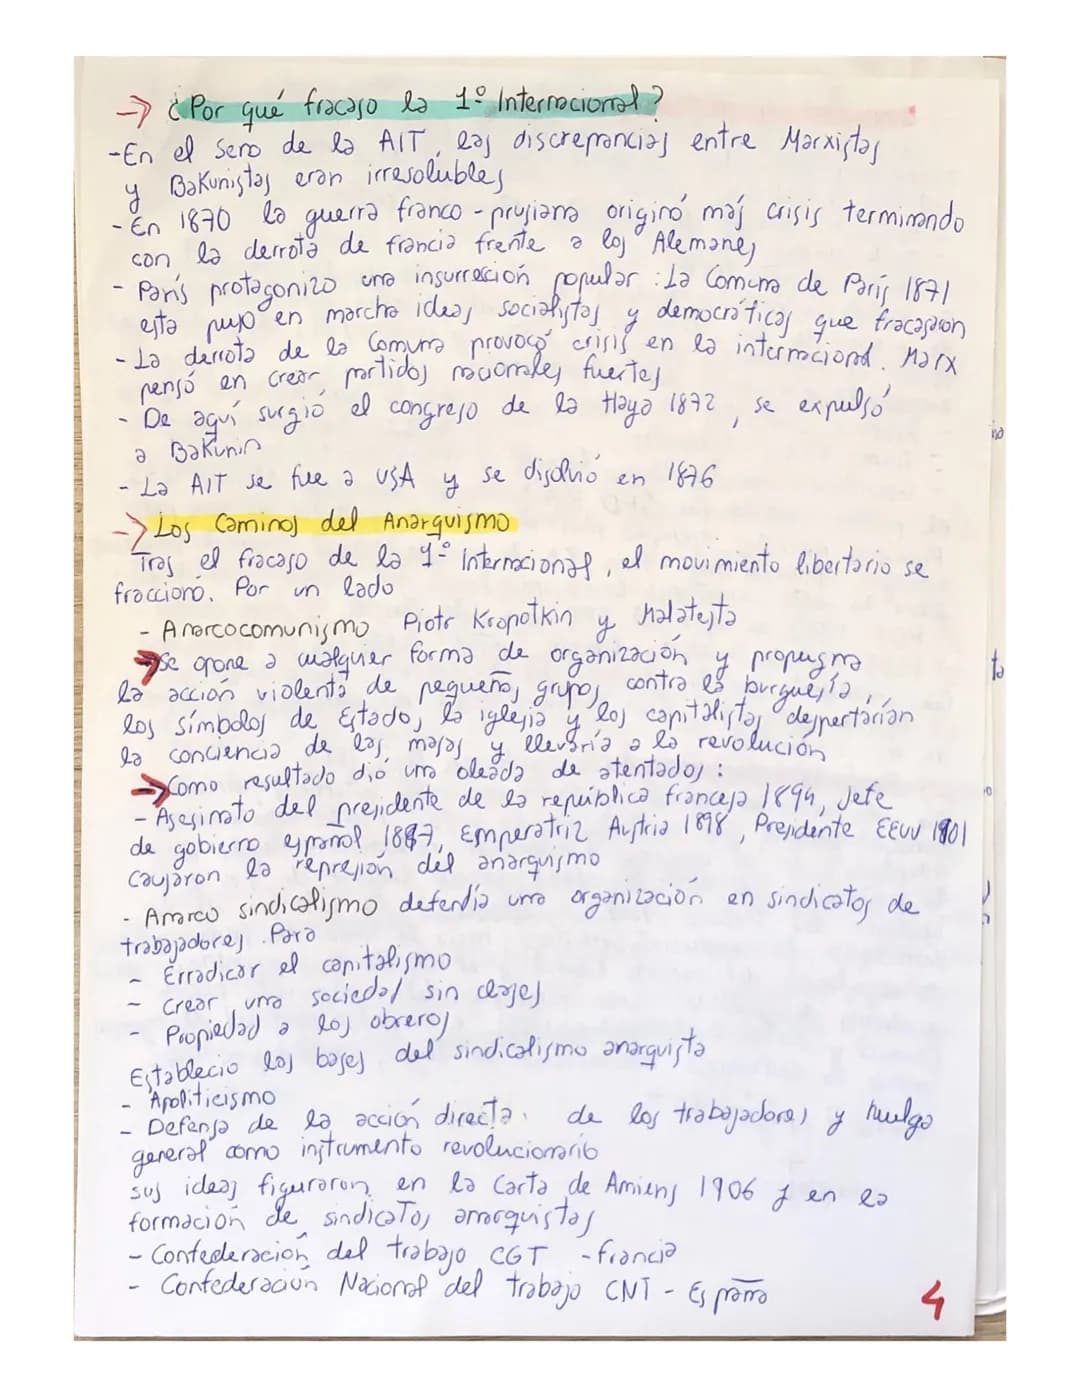 → ¿Por qué fracaso la 1º Internacional?
-En el seno de la AIT, las discrepancias entre Marxistas
y Bakunistas eran irresolubles
-En 1870 la guerra franco-prusiana originó más crisis terminando
con la derrota de francia frente a los Alemanes
- París protagonizo una insurrección popular: La Comuna de París 1871
esta puso en marcha ideas socialistas y democráticas que fracasaron
- La derrota de la Comuna provocó crisis en la internacional. Marx
pensó en crear partidos nacionales fuertes
- De aquí surgió el congreso de la Haya 1872, se expulsó
a Bakunin
- La AIT se fue a USA y se disolvió en 1876
→ Los Caminos del Anarquismo
Tras el fracaso de la 1º Internacional, el movimiento libertario se
fraccionó. Por un lado
- Anarcocomunismo Piotr Kropotkin y Malatesta
→Se opone a cualquier forma de organización y propugna
la acción violenta de pequeños grupos contra la burguesía,
los símbolos de Estado, la iglesia y los capitalistas despertarían
la conciencia de las masas y llevaría a la revolución
→Como resultado dió una oleada de atentados:
- Asesinato del presidente de la república francesa 1894, Jefe
de gobierno español 1897, Emperatriz Austria 1898, Presidente EEUU 1901
causaron la represión del anarquismo
- Anarco sindicalismo defendía una organización en sindicatos de
trabajadores. Para
- Erradicar el capitalismo
- Crear una sociedad sin clases
- Propiedad a los obreros
Establecio las bases del sindicalismo anarquista
- Apoliticismo
- Defensa de la acción directa. de los trabajadores y huelga
general como instrumento revolucionario
sus ideas figuraron en la Carta de Amiens 1906 y en la
formación de sindicatos anarquistas
- Confederación del trabajo CGT - francia
- Confederación Nacional del trabajo CNT - España
4